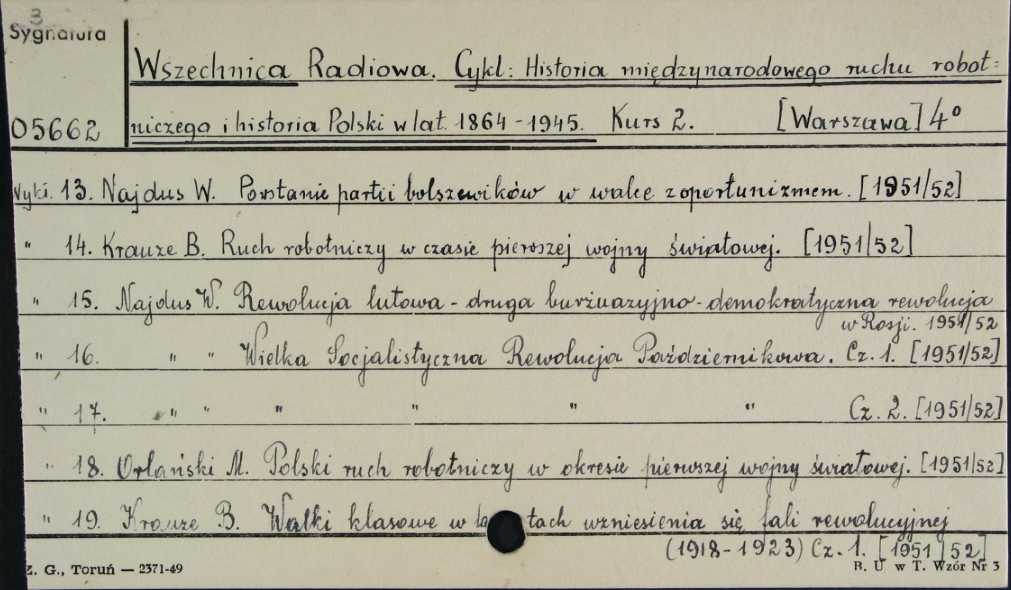 3
Sygnatura
Wszechnica Radiowa. Cykl: Historia międzynarodowego ruchu robot=
05662 niczego i historia Polski w lat. 1864-1945. Kurs 2. [Warszawa] 4°
Wykł. 13. Najdus W. Powstanie partii bolszewików w walce z oportunizmem. [1951/52]
" 14. Krauze B. Ruch robotniczy w czasie pierwszej wojny światowej. [1951/52]
" 15. Najdus W. Rewolucja lutowa - druga burżuazyjno-demokratyczna rewolucja
w Rosji. 1951/52
" 16. " " Wielka Socjalistyczna Rewolucja Październikowa. Cz. 1. [1951/52]
" 17. " " " " " " Cz. 2. [1951/52]
" 18. Orłański M. Polski ruch robotniczy w okresie pierwszej wojny światowej. [1951/52]
" 19. Krauze B. Walki klasowe w tach wzniesienia się fali rewolucyjnej
(1918-1923) Cz. 1. [1951/52]
Z. G., Toruń — 2371-49 B. U w T. Wzór Nr 3